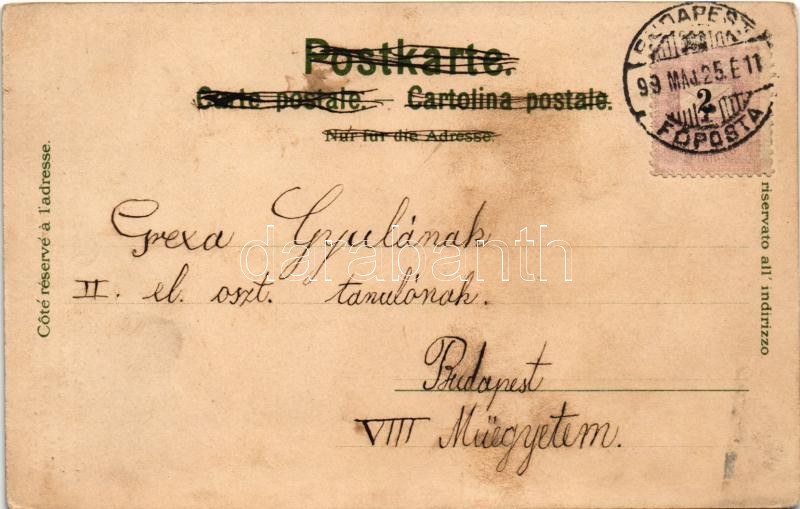 Postkarte.
Carte postale. – Cartolina postale.
Nur für die Adresse.
BUDAPEST
99 MÁJ. 25. E 11
FŐPOSTA
2
Côté réservé à l'adresse.
riservato all' indirizzo
Grexa Gyulának
II. el. oszt. tanulónak.
Budapest
VIII Műegyetem.
darabanth